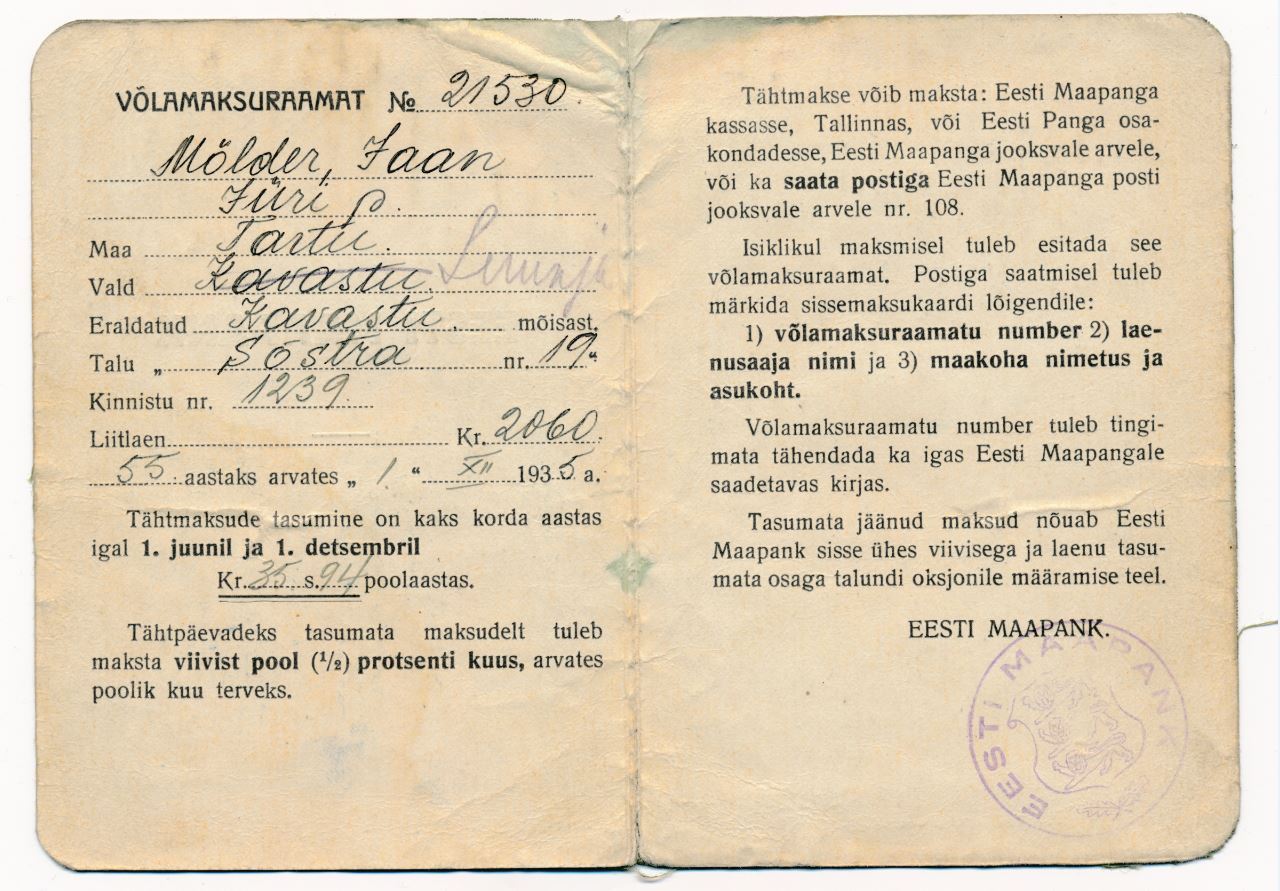 VÕLAMAKSURAAMAT № 21530.
Mölder, Jaan
Jüri p.
Maa Tartu.
Vald Kavastu. Luunja
Eraldatud Kavastu. mõisast.
Talu „ Sõstra nr. 19“
Kinnistu nr. 1239
Liitlaen Kr. 2060.
55 aastaks arvates „ 1. “ XII 1935 a.
Tähtmaksude tasumine on kaks korda aastas
igal 1. juunil ja 1. detsembril
Kr. 35 s. 94 poolaastas.
Tähtpäevadeks tasumata maksudelt tuleb
maksta viivist pool (½) protsenti kuus, arvates
poolik kuu terveks.
Tähtmakse võib maksta: Eesti Maapanga
kassasse, Tallinnas, või Eesti Panga osa-
kondadesse, Eesti Maapanga jooksvale arvele,
või ka saata postiga Eesti Maapanga posti
jooksvale arvele nr. 108.
Isiklikul maksmisel tuleb esitada see
võlamaksuraamat. Postiga saatmisel tuleb
märkida sissemaksukaardi lõigendile:
1) võlamaksuraamatu number 2) lae-
nusaaja nimi ja 3) maakoha nimetus ja
asukoht.
Võlamaksuraamatu number tuleb tingi-
mata tähendada ka igas Eesti Maapangale
saadetavas kirjas.
Tasumata jäänud maksud nõuab Eesti
Maapank sisse ühes viivisega ja laenu tasu-
mata osaga talundi oksjonile määramise teel.
EESTI MAAPANK.
EESTI MAAPANK